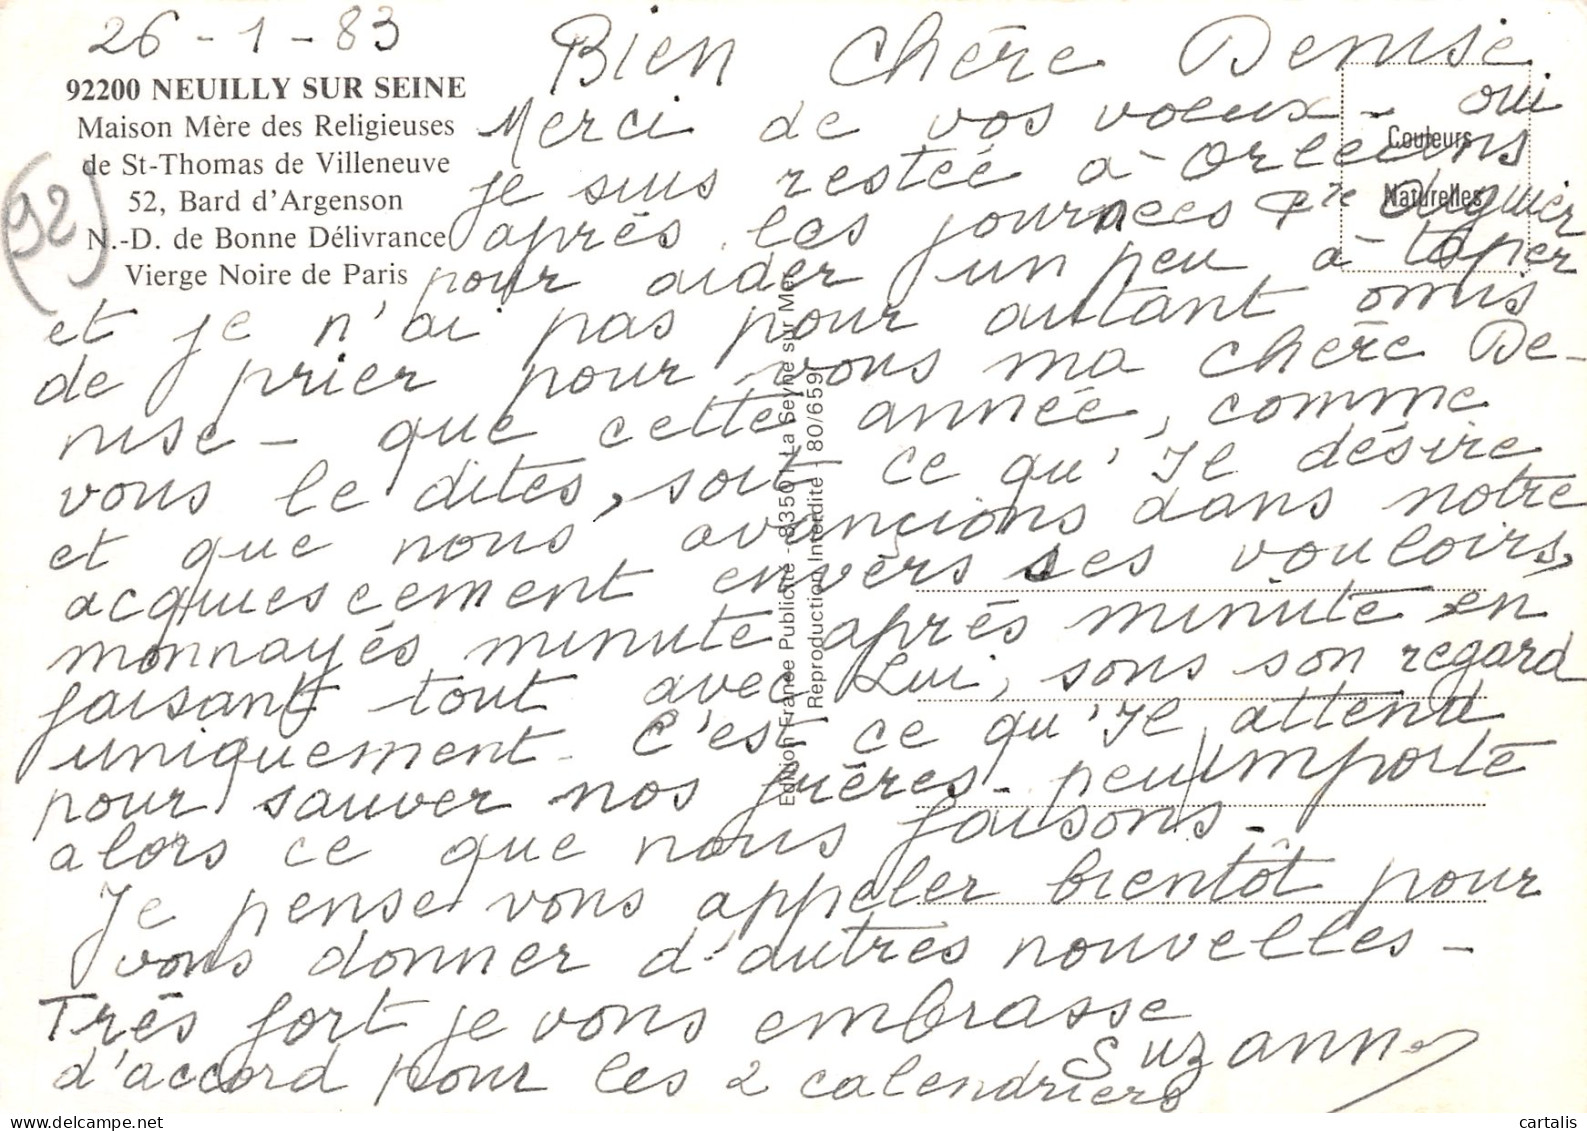 26-1-83
Bien chère Denise
92200 NEUILLY SUR SEINE
Maison Mère des Religieuses
de St-Thomas de Villeneuve
52, Bard d'Argenson
N.-D. de Bonne Délivrance
Vierge Noire de Paris
(92)
Couleurs
Naturelles
Merci de vos voeux - oui
je suis restée à Orléans
après les journées
pour aider un peu à taper
et je n'ai pas pour autant omis
de prier pour vous ma chère De-
nise - que cette année, comme
vous le dites, soit ce qu'Il désire
et que nous avancions dans notre
acquiescement envers ses vouloirs,
monnayés minute après minute en
faisant tout avec Lui, sous son regard
uniquement - C'est ce qu'Il attend
pour sauver nos frères - peu importe
alors ce que nous faisons -
Je pense vous appeler bientôt pour
vous donner d'autres nouvelles -
Très fort je vous embrasse
Suzanne
d'accord pour les 2 calendriers
Edition France Publicité - 83501 La Seyne sur Mer
Reproduction Interdite - 80/659
www.delcampe.net
cartalis